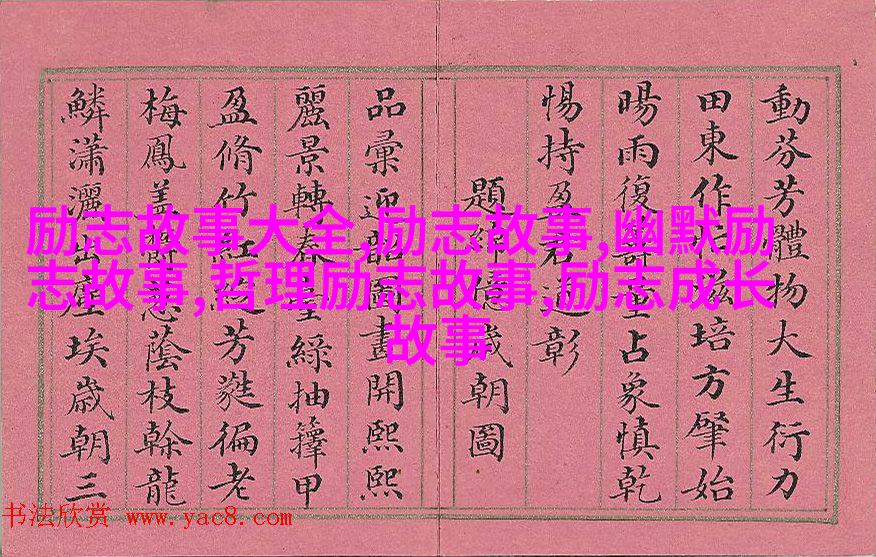 動芬芳體物大生衍力
田東作滋培方肇始
暘雨復重占象慎乾
惕持盈君道彰
題億歲朝圖
品彙迎韶圖畫開熙熙
麗景轉春臺綠抽籜甲
盈脩竹紅芳蕤徧老
梅鳳蓋欝葱蔭枝榦龍
鱗瀟灑出塵埃歲朝三
励志故事大全,励志故事,幽默励
志故事,哲理励志故事,励志成长
故事
书法欣赏 www.yac8.com